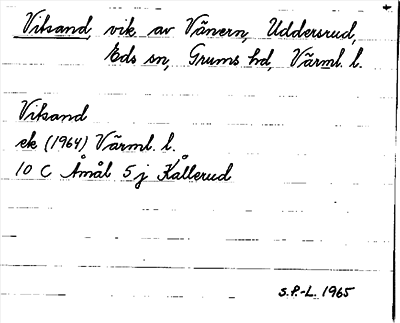 Vitsand, vik av Vänern, Uddersrud,
Eds sn, Grums hd, Värml. l.
Vitsand
ek (1964) Värml. l.
10 C Åmål 5 j Kållerud
S.P.-L. 1965